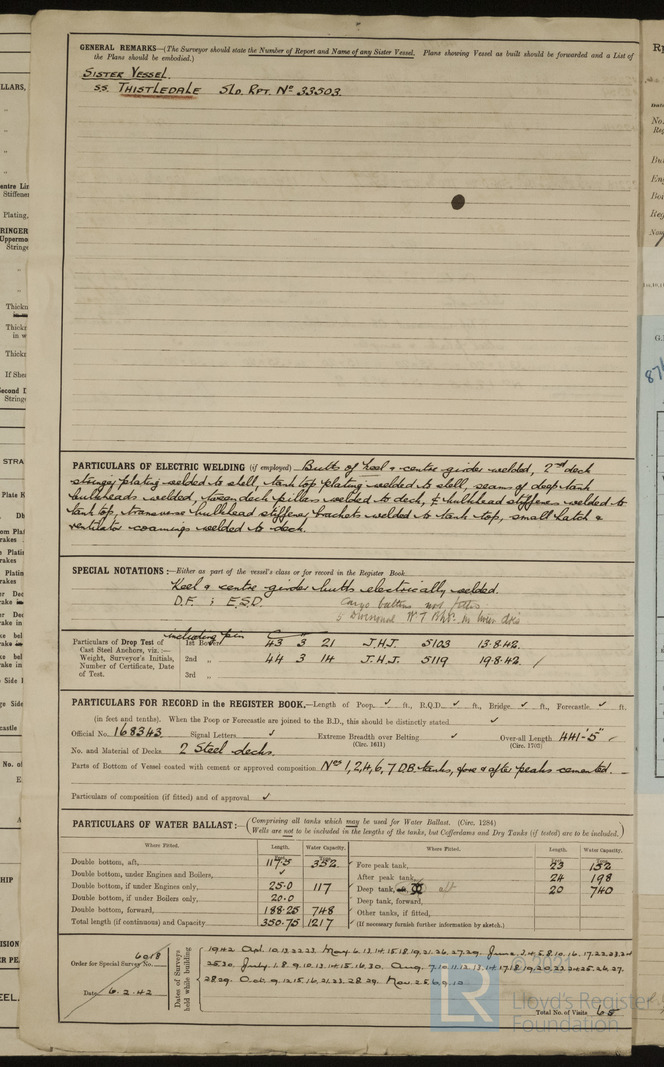 GENERAL REMARKS—(The Surveyor should state the Number of Report and Name of any Sister Vessel. Plans showing Vessel as built should be forwarded and a List of
the Plans should be embodied.)
SISTER VESSEL.
S.S. THISTLEDALE SLD. RPT. No 33503.
PARTICULARS OF ELECTRIC WELDING (if employed) Butts of keel & centre girder welded, 2nd deck
stringer plating welded to shell, tank top plating welded to shell, seams of deep tank
bulkheads welded, tween deck pillars welded to deck, bulkhead stiffeners welded to
tank top, transverse bulkhead stiffener brackets welded to tank top, small hatch &
ventilator coamings welded to deck.
SPECIAL NOTATIONS:—Either as part of the vessel's class or for record in the Register Book
Keel & centre girder butts electrically welded.
D.F. : E.S.D.
Cargo battens not fitted
including pin
Particulars of Drop Test of
Cast Steel Anchors, viz.:—
Weight, Surveyor's Initials,
Number of Certificate, Date
of Test.
1st Bower 43 3 21 J.H.J. 5103 13.8.42.
2nd „ 44 3 14 J.H.J. 5119 19.8.42 ✓
3rd „
PARTICULARS FOR RECORD in the REGISTER BOOK.—Length of Poop ✓ ft., R.Q.D. ✓ ft., Bridge ✓ ft., Forecastle ✓ ft.
(in feet and tenths). When the Poop or Forecastle are joined to the B.D., this should be distinctly stated ✓
Official No. 168343 Signal Letters ✓ Extreme Breadth over Belting ✓ Over-all Length 441'-5" ✓
(Circ. 1611) (Circ. 1703)
No. and Material of Decks 2 Steel decks.
Parts of Bottom of Vessel coated with cement or approved composition Nos 1,2,4,6,7 D.B. tanks, fore & after peaks cemented.
Particulars of composition (if fitted) and of approval ✓
PARTICULARS OF WATER BALLAST:— (Comprising all tanks which may be used for Water Ballast. (Circ. 1284)
Wells are not to be included in the lengths of the tanks, but Cofferdams and Dry Tanks (if tested) are to be included.)
Where Fitted. Length. Water Capacity. Where Fitted. Length. Water Capacity.
Double bottom, aft, 117.5 352
Double bottom, under Engines and Boilers, ✓
Double bottom, if under Engines only, 25.0 117
Double bottom, if under Boilers only, 20.0
Double bottom, forward, 188.25 748
Total length (if continuous) and Capacity 350.75 1217
Fore peak tank, 23 152
After peak tank, 24 198
Deep tank, aft 20 740
Deep tank, forward,
Other tanks, if fitted,
(If necessary furnish further information by sketch.)
Order for Special Survey No. 6018
Date 6.2.42
Dates of Surveys
held while building
1942 Apl. 10.13.22.23. May. 6.13.14.15.18.19.21.26.27.29. June 2.4.5.8.10.16.17.22.23.24
25.30. July. 1.8.9.10.13.14.15.16.30. Aug. 7.10.11.12.13.14.17.18.19.20.23.24.25.26.27.
28.29. Oct. 9.12.15.16.21.23.28.29. Nov. 2.5.6.9.10.
Total No. of Visits 65
© 2021
LR
Lloyd's Register
Foundation